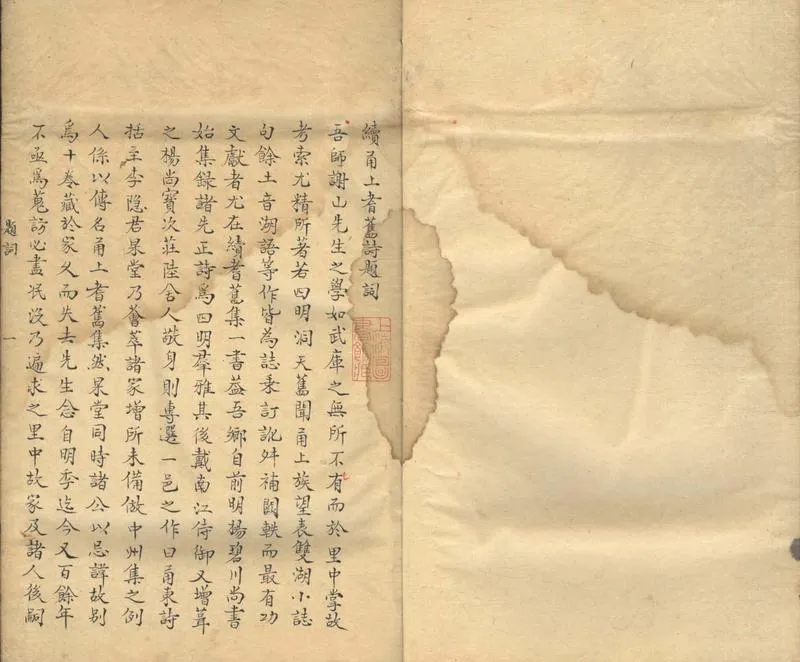 續甬上耆舊詩題詞
吾師謝山先生之學如武庫之無所不有而於里中掌故
考索尤精所著若四明洞天舊聞甬上族望表雙湖小誌
句餘土音湖語等作皆為誌乘訂訛舛補闕軼而最有功
文獻者尤在續耆舊集一書葢吾鄉自前明楊碧川尚書
始集録諸先正詩爲四明羣雅其後戴南江侍御又增葺
之楊尚寳次莊陸舍人敬身則專選一邑之作曰甬東詩
括至李隐君杲堂乃薈萃諸家增所未備倣中州集之例
人係以傳名甬上耆舊集然杲堂同時諸公以忌諱故别
爲十卷藏於家久而失去先生念自明季迄今又百餘年
不亟爲蒐訪必盡泯没乃遍求之里中故家及諸人後嗣
題詞
一
上海圖
書館藏